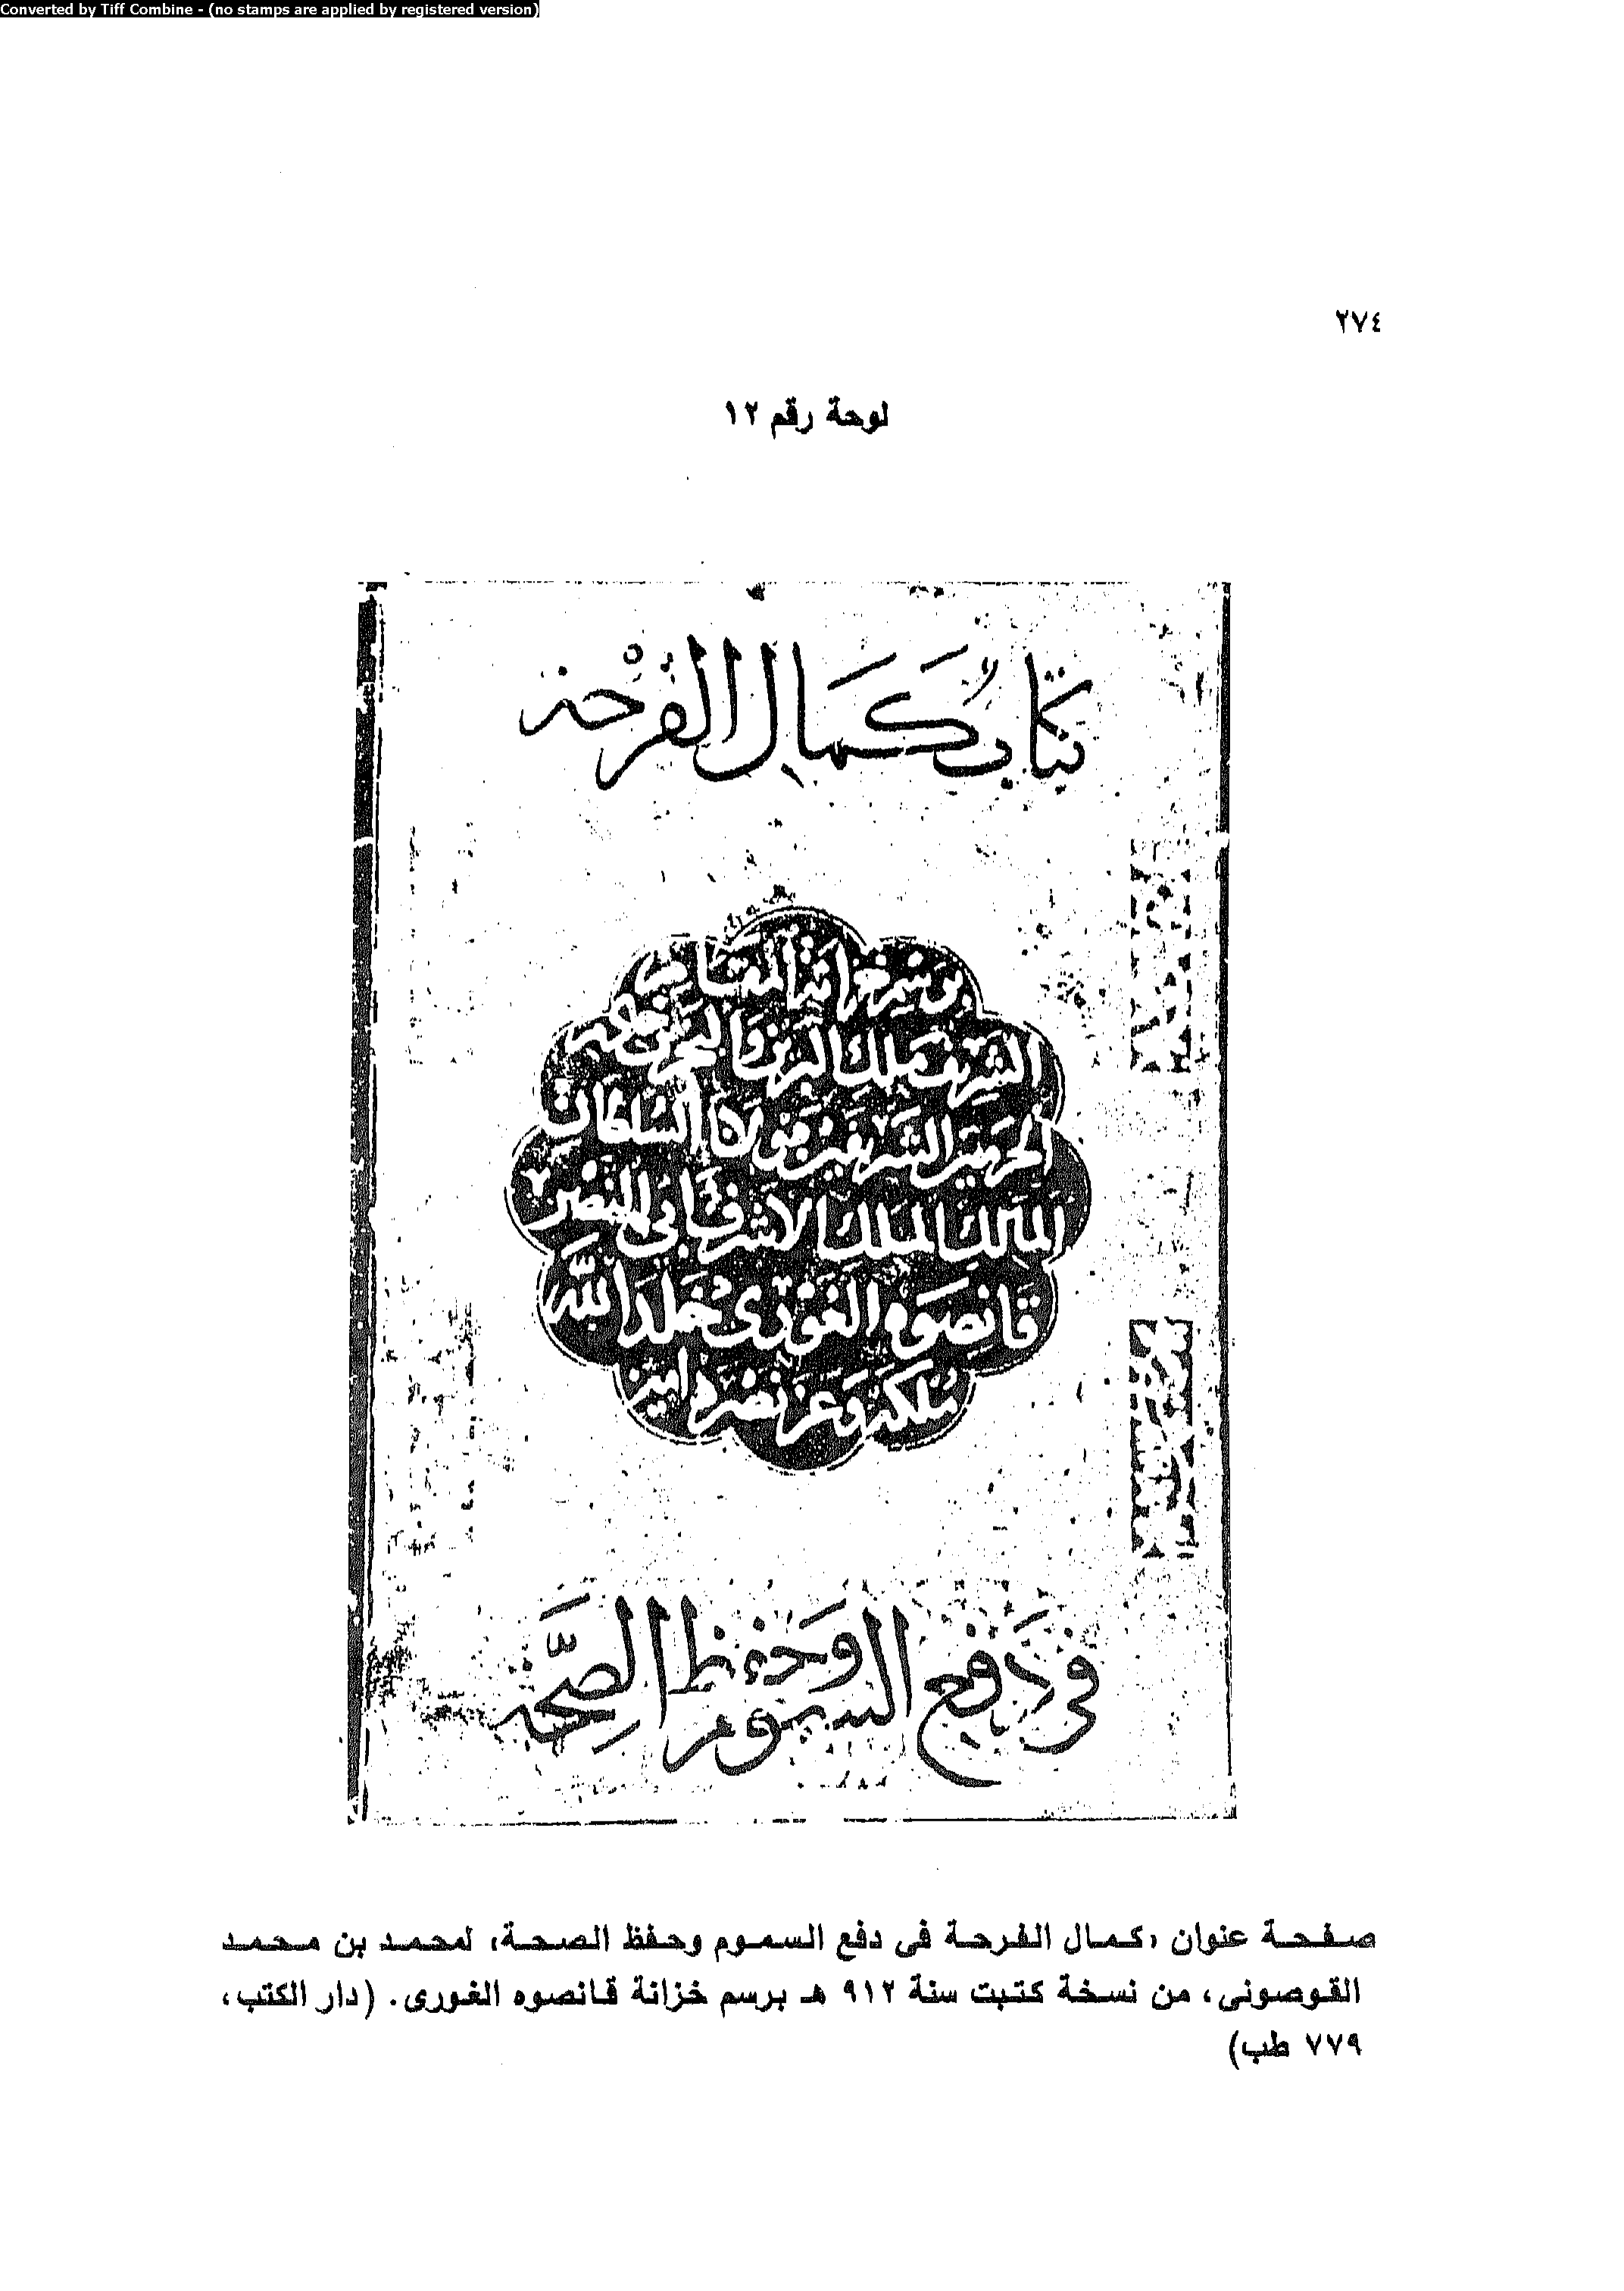 Converted by Tiff Combine - (no stamps are applied by registered version)
٢٧٤
لوحة رقم ١٢
كتاب كمال الفرحة
برسم خزانة المقام
الشريف ملك البرين والبحرين خادم
الحرمين الشريفين مولانا السلطان
المالك الملك الاشرف ابى النصر
قانصوه الغورى خلد الله
ملكه وعز نصره امين
فى دفع السموم وحفظ الصحة
صفحة عنوان «كمال الفرحة فى دفع السموم وحفظ الصحة» لمحمد بن محمد
القوصونى، من نسخة كتبت سنة ٩١٢ هـ برسم خزانة قانصوه الغورى. (دار الكتب،
٧٧٩ طب)